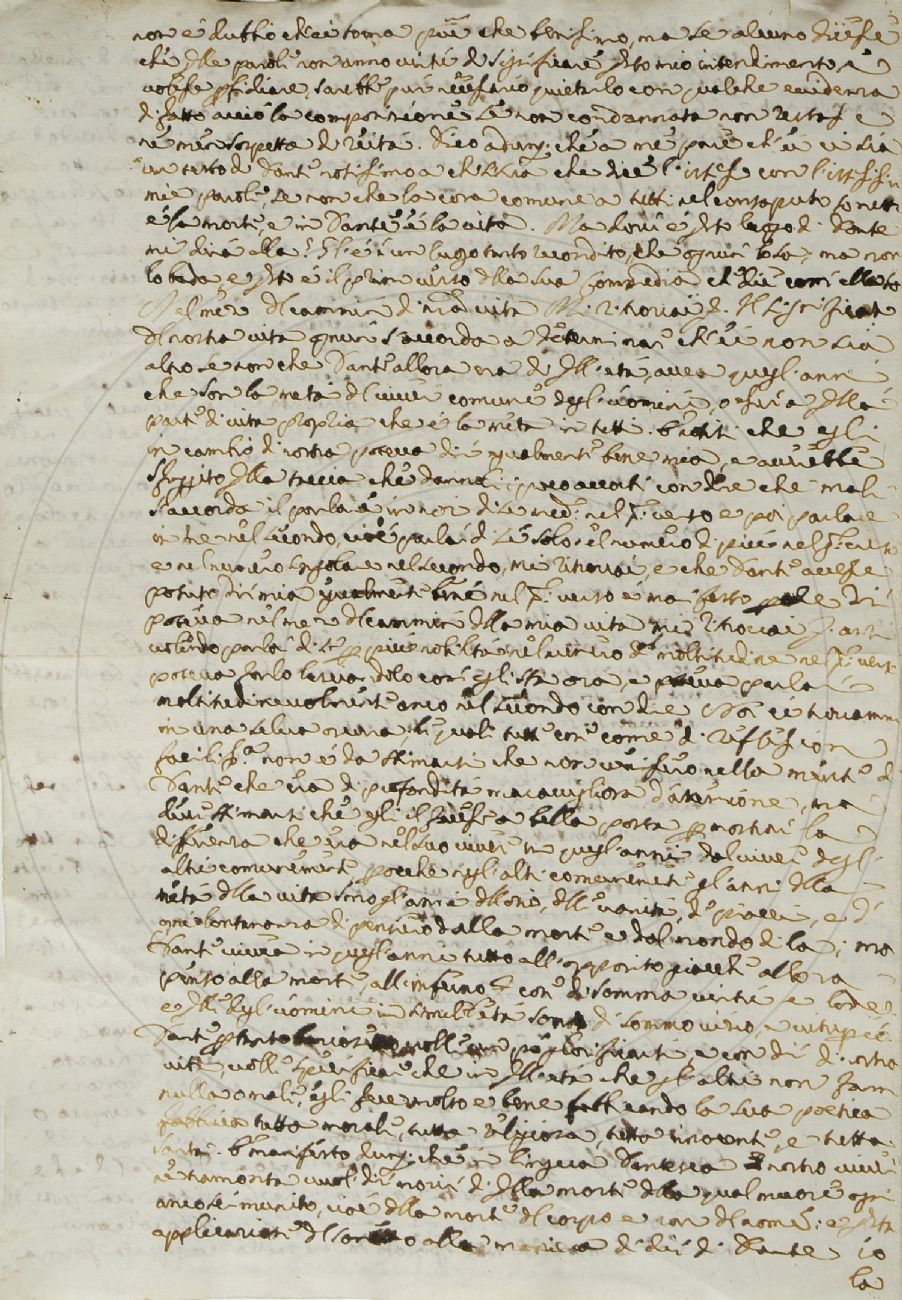 non è dubbio che ci torna più che benissimo, ma se alcuno dicesse
che quelle parole non anno virtù di significare questo mio intendimento, e
volesse perfidiare, sarebbe pur necessario quietarlo con qualche evidenza
di fatto acciò la composizione sia non condannata non
nè men sospetta di reità. Dico adunque che a me pare che vi sia
un testo di Dante notissimo a che dice l'istesso con l'istessissime
mie parole, se non che la cosa comune a tutti nel
è la morte, e in Dante è la vita. Ma dov'è questo luogo di Dante
mi dirà ella? Egli è in un luogo tanto recondito, che ognun lo sa, ma non
lo bada e questo è il primo verso della sua Commedia
Nel mezzo del cammin di nostra vita Mi ritrovai &c. Il significato
di nostra vita ognun s'accorda a determinare che non sia
altro se non che Dante allora era di quell'età, avea quegli anni
che son la metà del viver comune degli uomini, o sia quella
parte di vita propria che è la metà in tutti. che egli
in cambio di nostra poteva dire egualmente bene mia, e avrebbe
sfuggito quella taccia che danno i poco accorti con dire che mal
s'accorda il parlare in noi di nel primo verso e poi parlare
in me nel secondo, cioè parlar di sè solo nel numero di più nel primo verso
e nel numero singolare nel secondo, mi ritrovai, e che Dante avesse
potuto dir mia egualmente bene nel primo verso è manifesto
poteva nel mezzo del cammin della mia vita mi ritrovai &c. anzi
volendo parlar di sè per più nobiltà nel numero di moltitudine nel primo verso
poteva farlo egli ora, e poteva parlare
moltitudinevolmente anco nel secondo con dire Noi ci trovammo
in una selva oscura le quali tutte cose come di riflessione
facilissima non è da stimarsi che non venissero nella mente di
Dante che era di profondità maravigliosa d'attenzione, ma
deve stimarsi che egli il facesse a bella posta per mostrare la
differenza che era nel suo vivere in quegli anni dal vivere degli
altri comunemente, poiche negli altri comunemente gli anni della
metà della vita sono gli anni dell'ozio, della vanità, de' piaceri, e di
ogni lontananza di pensiero dalla morte e dal mondo di là; ma
Dante viveva in quegli anni tutto all'opposito giacchè allora
pensò alla morte, all'inferno &c. cose di somma virtù e lode
e quelle degli uomini in simil età sono di sommo vizio, e vituperio
Dante pertanto volle e con dir di nostra
vita volle specificare che in quell'età che gli altri non fan
nulla o male, egli fece molto e bene fabbricando la sua poetica
fabbrica tutta morale, tutta religiosa, tutta innocente, e tutta
santa. È manifesto dunque che in lingua Dantesca
nostra morte vuol dir morir di quella morte della qual muore ogni
ancorchè munito, cioè della morte del corpo e non del nome: e questa
applicazione del alla maniera di dire di Dante io
la